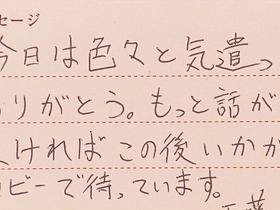 セージ
今日は色々と気遣っ
りがとう。もっと話が
ければこの後いかが
ビーで待っています。